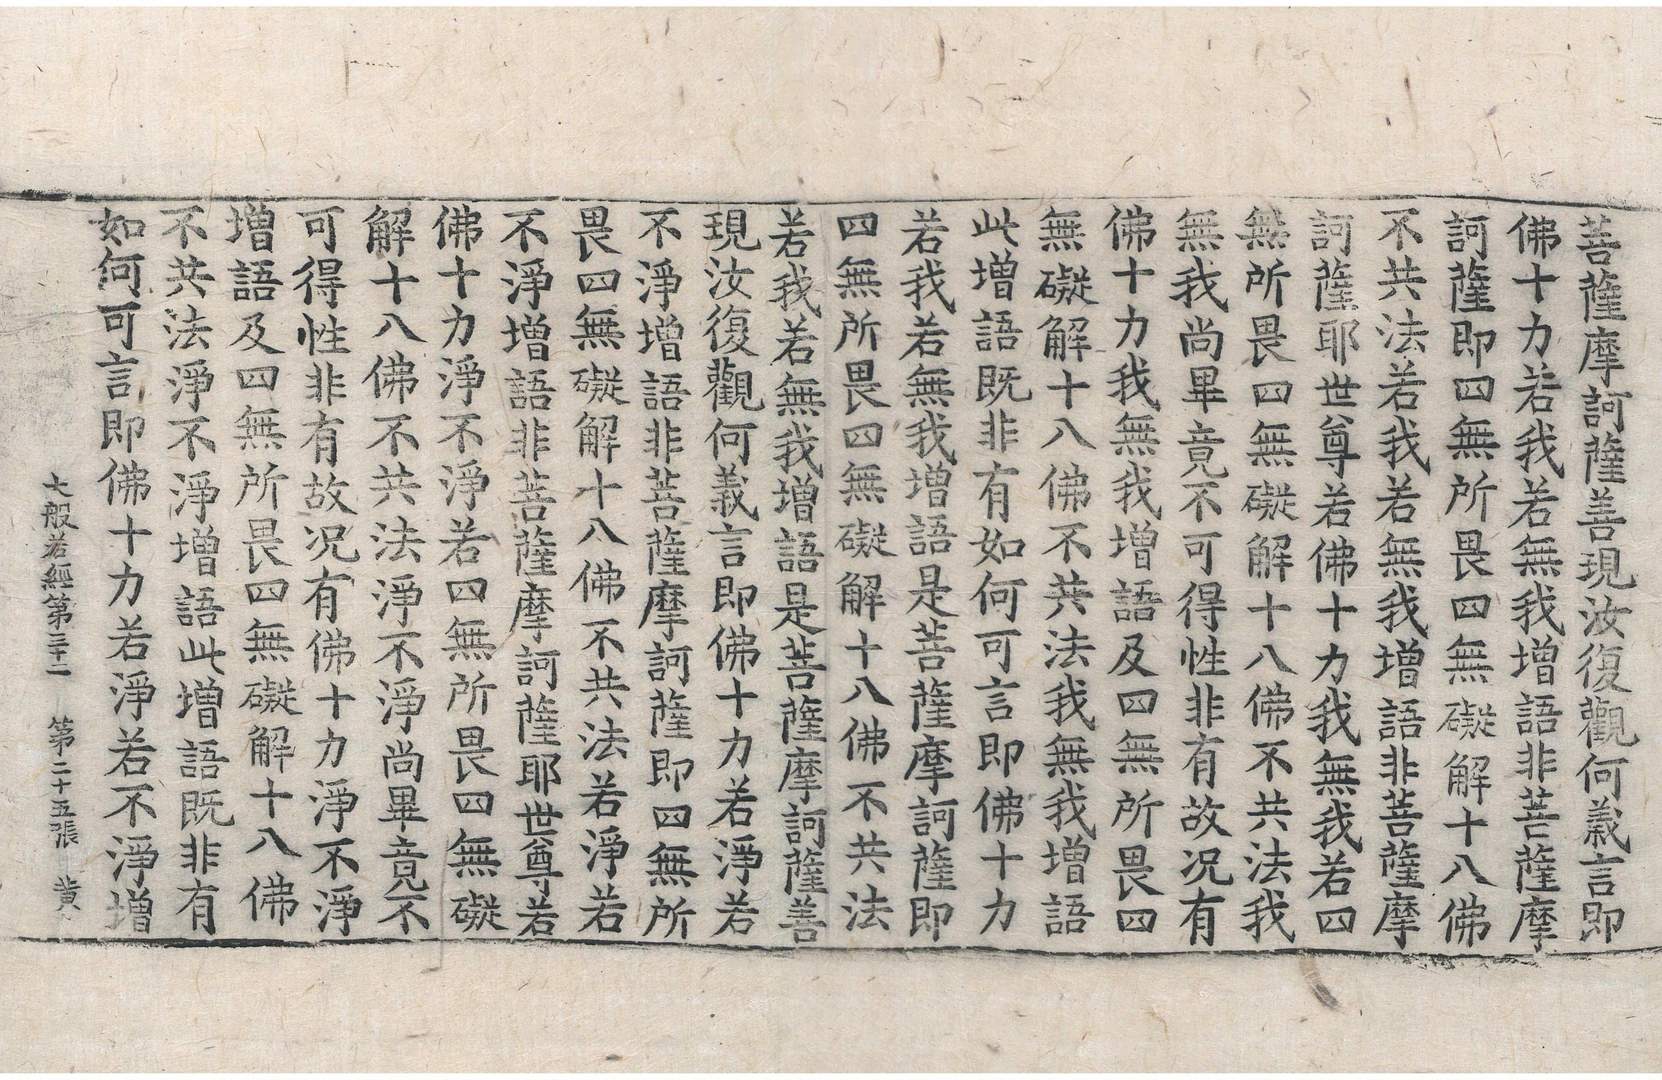 菩薩摩訶薩善現汝復觀何義言即
佛十力若我若無我增語非菩薩摩
訶薩即四無所畏四無礙解十八佛
不共法若我若無我增語非菩薩摩
訶薩耶世尊若佛十力我無我若四
無所畏四無礙解十八佛不共法我
無我尚畢竟不可得性非有故况有
佛十力我無我增語及四無所畏四
無礙解十八佛不共法我無我增語
此增語既非有如何可言即佛十力
若我若無我增語是菩薩摩訶薩即
四無所畏四無礙解十八佛不共法
若我若無我增語是菩薩摩訶薩善
現汝復觀何義言即佛十力若淨若
不淨增語非菩薩摩訶薩即四無所
畏四無礙解十八佛不共法若淨若
不淨增語非菩薩摩訶薩耶世尊若
佛十力淨不淨若四無所畏四無礙
解十八佛不共法淨不淨尚畢竟不
可得性非有故况有佛十力淨不淨
增語及四無所畏四無礙解十八佛
不共法淨不淨增語此增語既非有
如何可言即佛十力若淨若不淨增
大般若經第三十二 第二十五張 黄